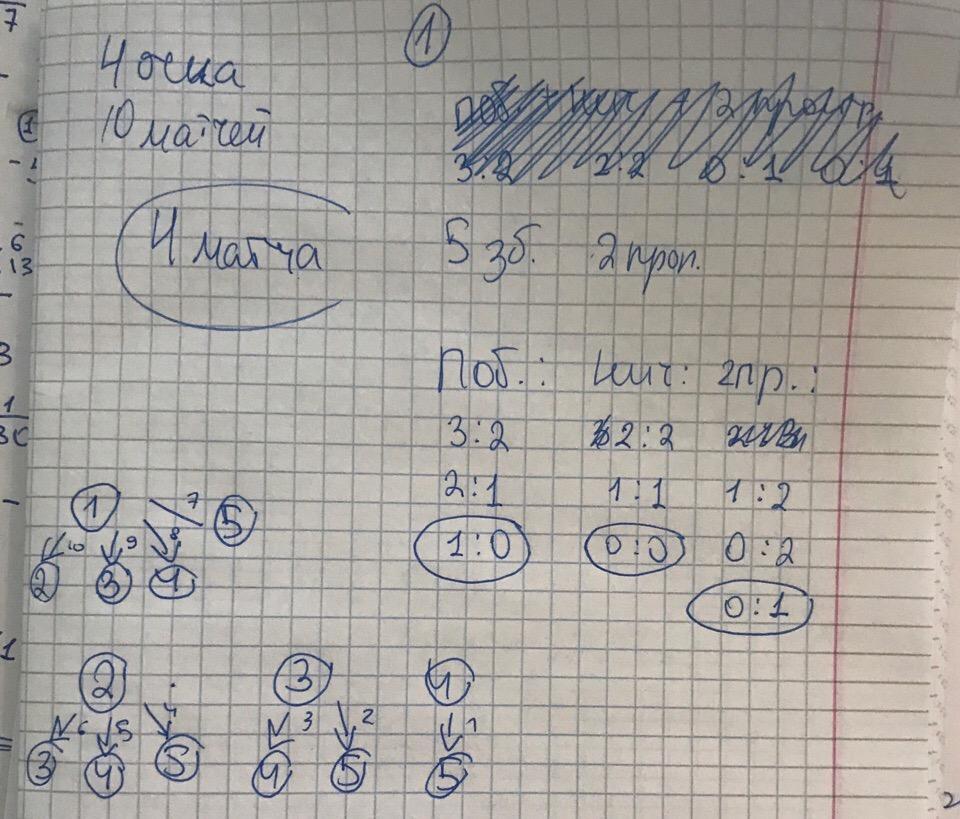 ①
4 очка
10 матчей
3:2 2:2 0:1 0:1
4 матча
5 зб. 2 проп.
Поб.: Нич: 2пр.:
3:2 2:2
2:1 1:1 1:2
1:0 0:0 0:2
0:1
① 7 ⑤
10 9 8
② ③ ④
② ③ ④
6 5 4 3 2 1
③ ④ ⑤ ④ ⑤ ⑤
2